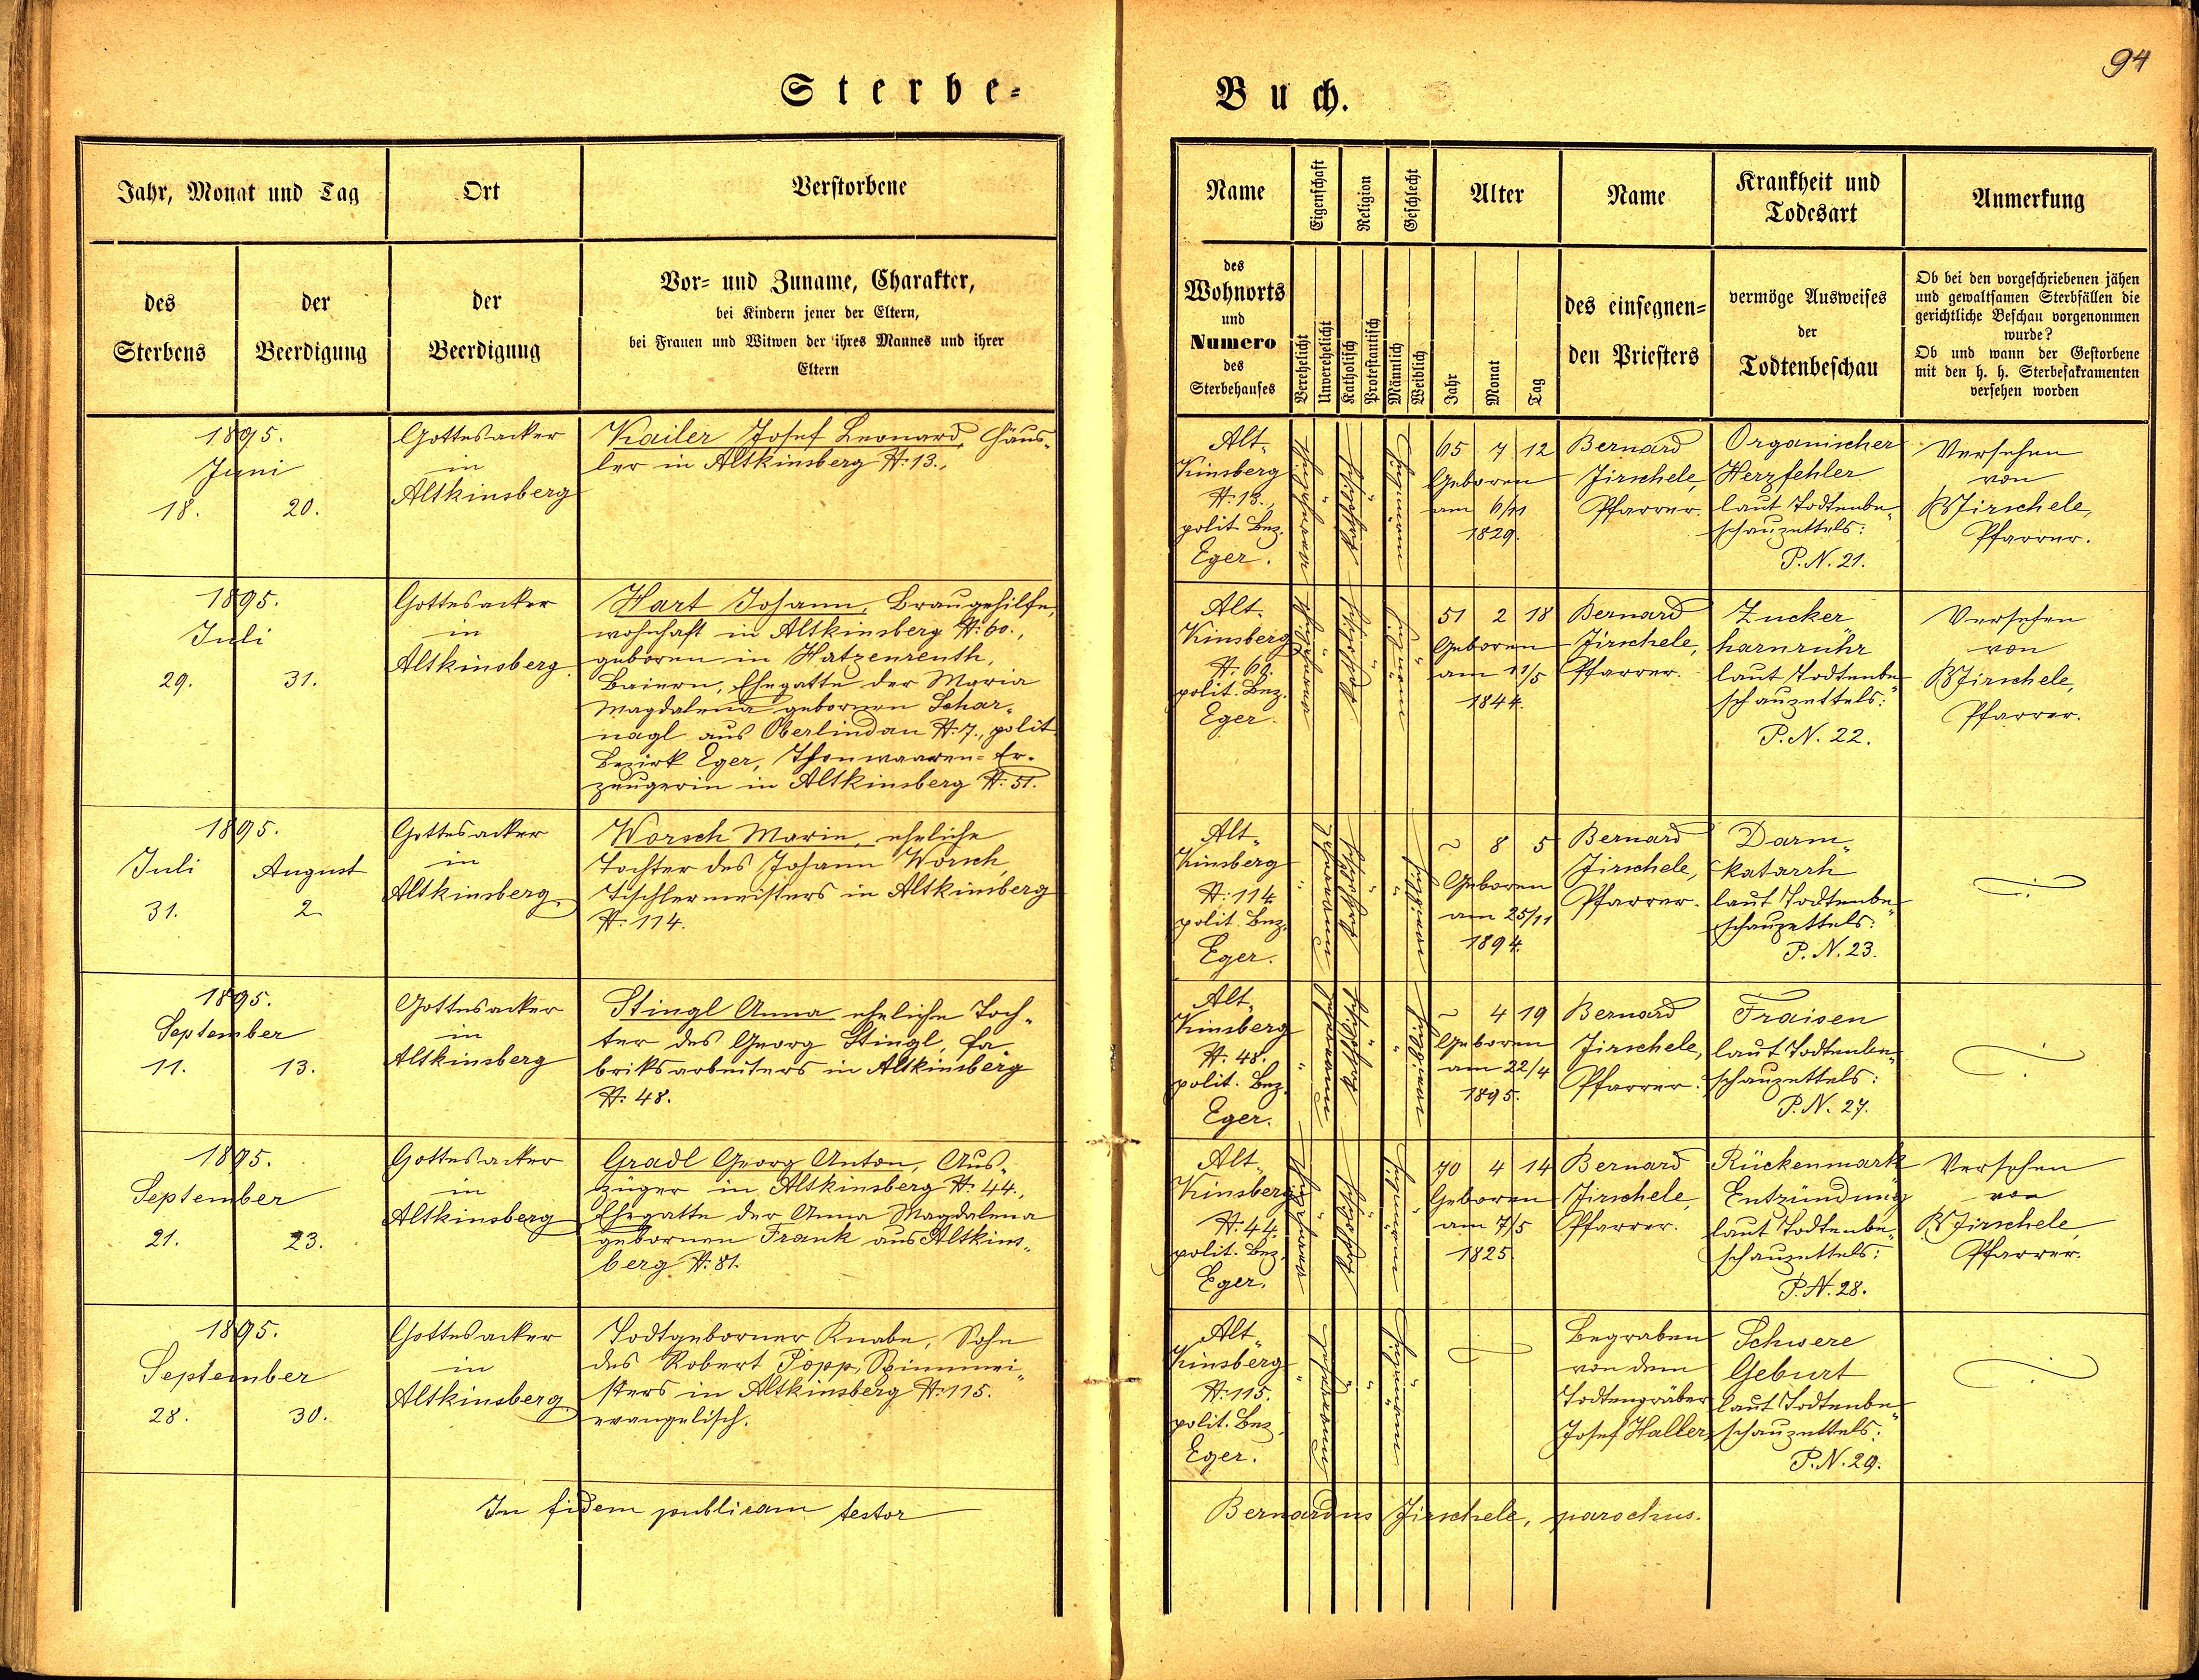 94
Sterbe-
Buch.
Jahr, Monat und Tag
Ort
Verstorbene
des
Sterbens
der
Beerdigung
der
Beerdigung
Vor- und Zuname, Charakter,
bei Kindern jener der Eltern,
bei Frauen und Witwen der ihres Mannes und ihrer
Eltern
Name
Eigenschaft
Religion
Geschlecht
Alter
Name
Krankheit und
Todesart
Anmerkung
des
Wohnorts
und
Numero
des
Sterbehauses
Verehelicht
Unverehelicht
Katholisch
Protestantisch
Männlich
Weiblich
Jahr
Monat
Tag
des einsegnen-
den Priesters
vermöge Ausweises
der
Todtenbeschau
Ob bei den vorgeschriebenen jähen
und gewaltsamen Sterbfällen die
gerichtliche Beschau vorgenommen
wurde?
Ob und wann der Gestorbene
mit den h. h. Sterbesakramenten
versehen worden
1895.
Juni
18. 20.
Gottesacker
in
Altkinsberg
Kailer Josef Leonard, Häus-
ler in Altkinsberg N: 13.,
Alt-
Kinsberg
N: 13.,
polit. Bez.
Eger.
65 7 12
Geboren
am 6/11
1829.
Bernard
Jirschele,
Pfarrer.
Organischer
Herzfehler
laut Todtenbe-
schauzettels:
P. N. 21.
Versehen
von
B Jirschele,
Pfarrer.
1895.
Juli
29. 31.
Gottesacker
in
Altkinsberg.
Hart Johann, Braugehilfe,
wohnhaft in Altkinsberg N: 60.,
geboren in Hatzenreuth,
Baiern, Ehegatte der Maria
Magdalena gebornen Schar-
nagl aus Oberlindau N: 7., polit.
Bezirk Eger, Thonwaaren-Er-
zeugerin in Altkinsberg N: 51.
Alt-
Kinsberg
N: 60.
polit. Bez.
Eger.
51 2 18
Geboren
am 11/5
1844.
Bernard
Jirschele,
Pfarrer.
Zucker
harnrühr
laut Todtenbe-
schauzettels:
P. N. 22.
Versehen
von
B Jirschele,
Pfarrer.
1895.
Juli August
31. 2
Gottesacker
in
Altkinsberg.
Worsch Marie, eheliche
Tochter des Johann Worsch,
Tischlermeisters in Altkinsberg
N: 114.
Alt-
Kinsberg
N: 114.
polit. Bez.
Eger.
~ 8 5
Geboren
am 25/11
1894.
Bernard
Jirschele,
Pfarrer.
Darm-
katarrh
laut Todtenbe-
schauzettels:
P. N. 23.
1895.
September
11. 13.
Gottesacker
in
Altkinsberg
Stingl Anna eheliche Toch-
ter des Georg Stingl, Fa-
briksarbeiters in Altkinsberg
N: 48.
Alt-
Kinsberg
N: 48.
polit. Bez.
Eger.
~ 4 19
Geboren
am 22/4
1895.
Bernard
Jirschele,
Pfarrer.
Fraisen
laut Todtenbe-
schauzettels:
P. N. 27.
1895.
September
21. 23.
Gottesacker
in
Altkinsberg
Gradl Georg Anton, Aus-
züger in Altkinsberg N: 44.,
Ehegatte der Anna Magdalena
gebornen Frank aus Altkins-
berg N: 81.
Alt-
Kinsberg
N: 44.
polit. Bez.
Eger.
70 4 14
Geboren
am 7/5
1825.
Bernard
Jirschele,
Pfarrer.
Rückenmark
Entzündung
laut Todtenbe-
schauzettels:
P. N. 28.
Versehen
von
B Jirschele,
Pfarrer.
1895.
September
28. 30.
Gottesacker
in
Altkinsberg
Todtgeborner Knabe, Sohn
des Robert Popp, Spinnmei-
sters in Altkinsberg N: 115.
evangelisch.
Alt-
Kinsberg
N: 115.
polit. Bez.
Eger.
Begraben
von dem
Todtengräber
Josef Haller,
Schwere
Geburt
laut Todtenbe-
schauzettels:
P. N. 29.
In fidem publicam testor
Bernardus Jirschele, parochus.